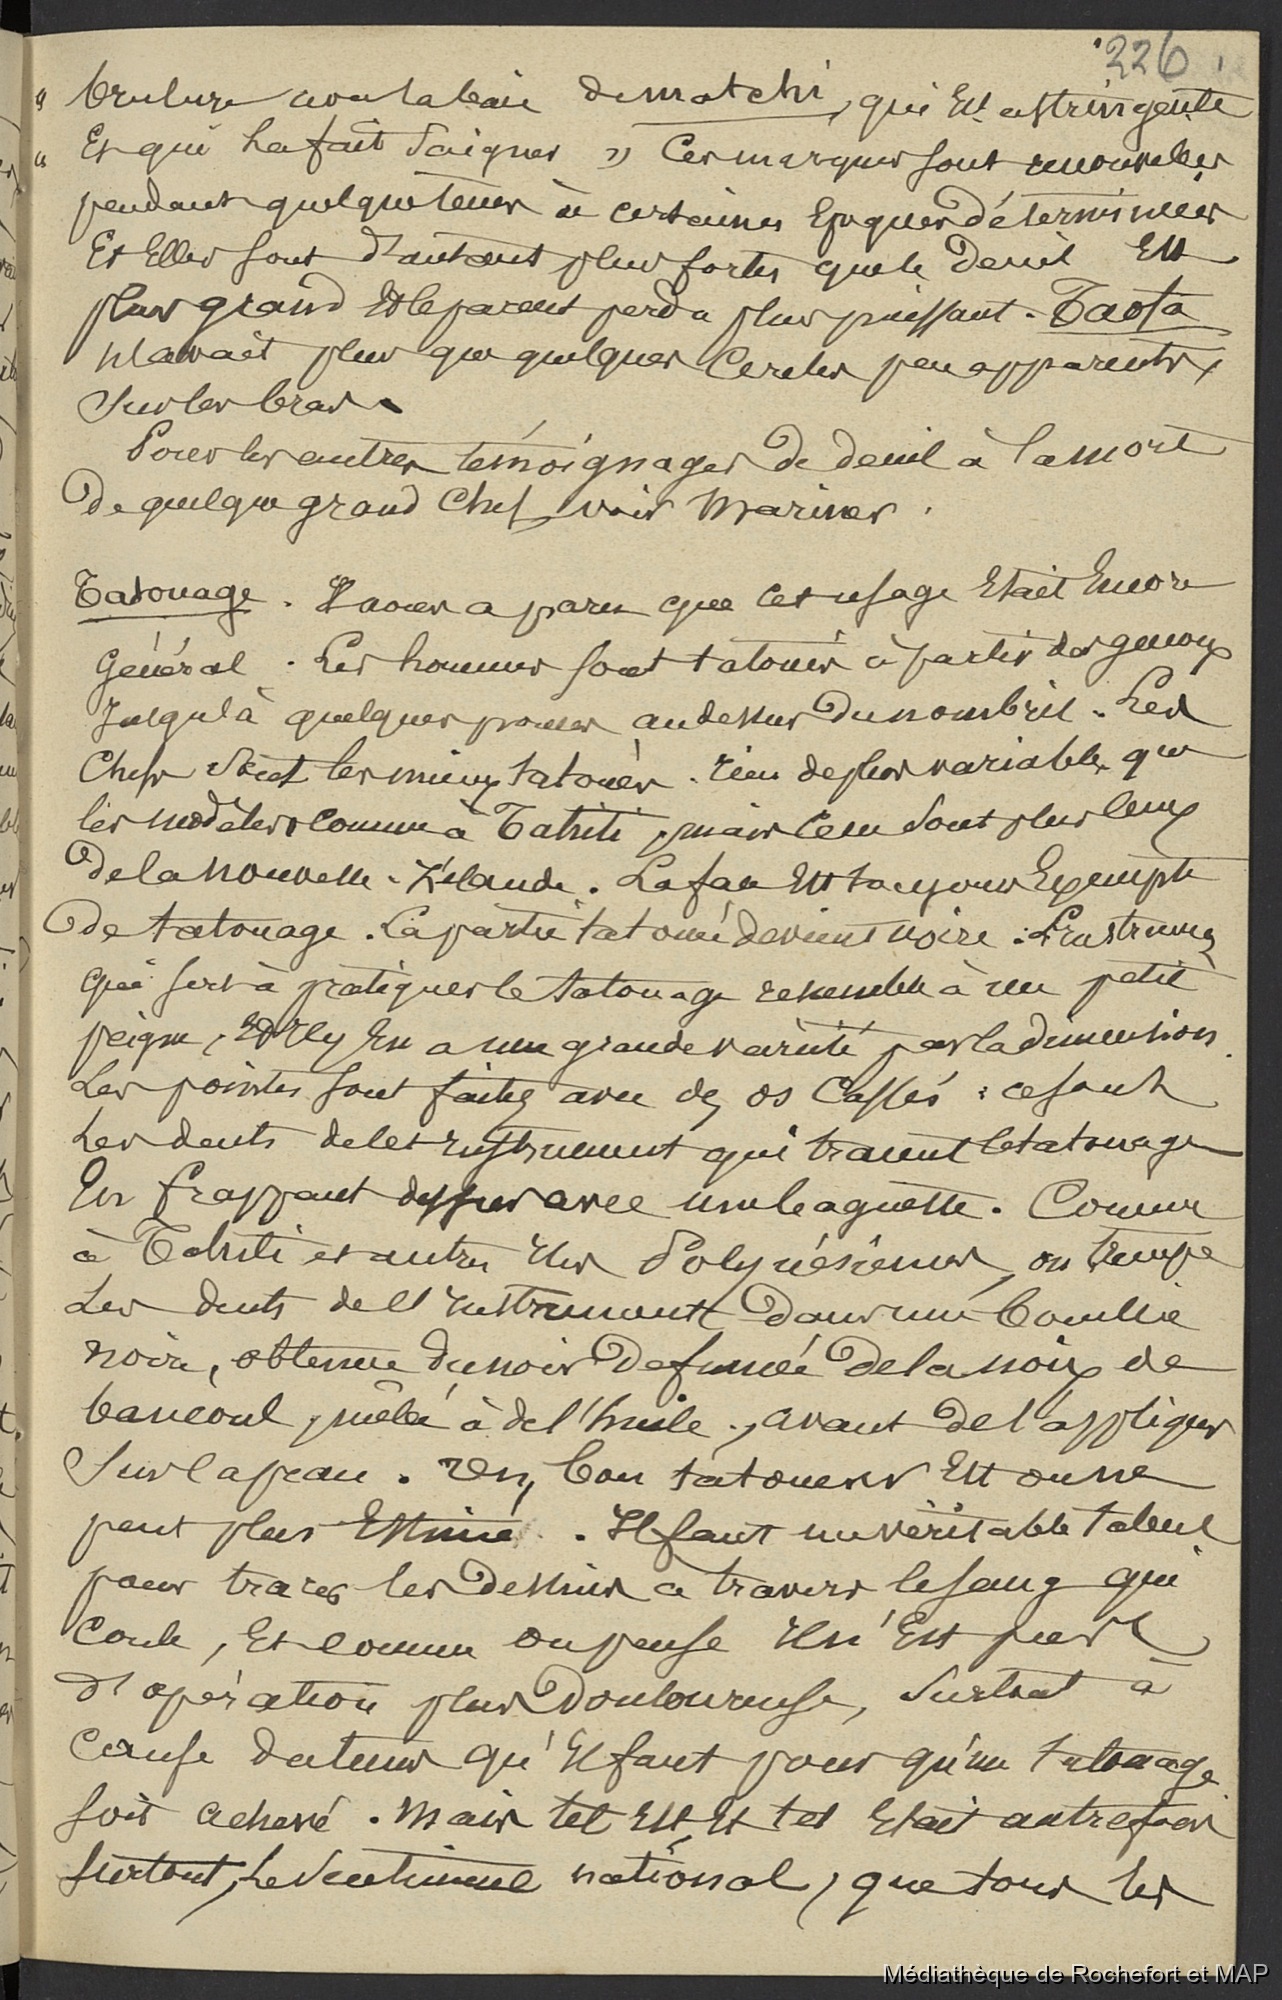 226
" brulure avec la baie de matchi, qui Est astringente
" Et qui la fait saigner » Ces marques sont renouvelées
pendant quelque tems à certaines Epoques déterminées
Et Elles sont d'autant plus fortes que le deuil Est
plus grand Et le parent perdu plus puissant. Taofa
n'avait plus que quelques Cercles peu apparents,
Sur les bras.
Pour les autres témoignages de deuil à la mort
De quelque grand Chef, voir Mariner.
Tatouage. Il nous a paru que cet usage Etait Encore
général. Les hommes sont tatoués à partir des genoux
Jusqu'à quelques pouces au dessus Du nombril. Les
Chefs Sont les mieux tatoués. rien de plus variable que
les modèles comme à Tahiti, mais Ce ne Sont plus Ceux
De la Nouvelle-Zélande. La face Est toujours Exempte
De tatouage. La partie tatouée devient noire. L'instrument
qui sert à pratiquer le tatouage ressemble à un petit
peigne, Et Il y En a une grande variété par la dimension.
Les pointes sont faites avec des os Cassés : ce sont
Les dents de cet Instrument qui tracent le tatouage
En frappant dessus avec une baguette. Comme
à Tahiti et autres Iles Polynésiennes, on trempe
Les dents de l'Instrument Dans une bouillie
noire, obtenue du noir De fumée De la noix de
bancoul, mêlée à de l'huile, avant De l'appliquer
Sur la peau. Un bon tatoueur Est on ne
peut plus Estimé. Il faut un véritable talent
pour tracer les Dessins a travers le sang qui
coule, Et comme on pense Il n'Est pas
d'opération plus Douloureuse, Surtout à
Cause du tems qu'Il faut pour qu'un tatouage
soit achevé. Mais tel Est Et tel Etait autrefois
surtout, Le Sentiment national, que tous les
Médiathèque de Rochefort et MAP